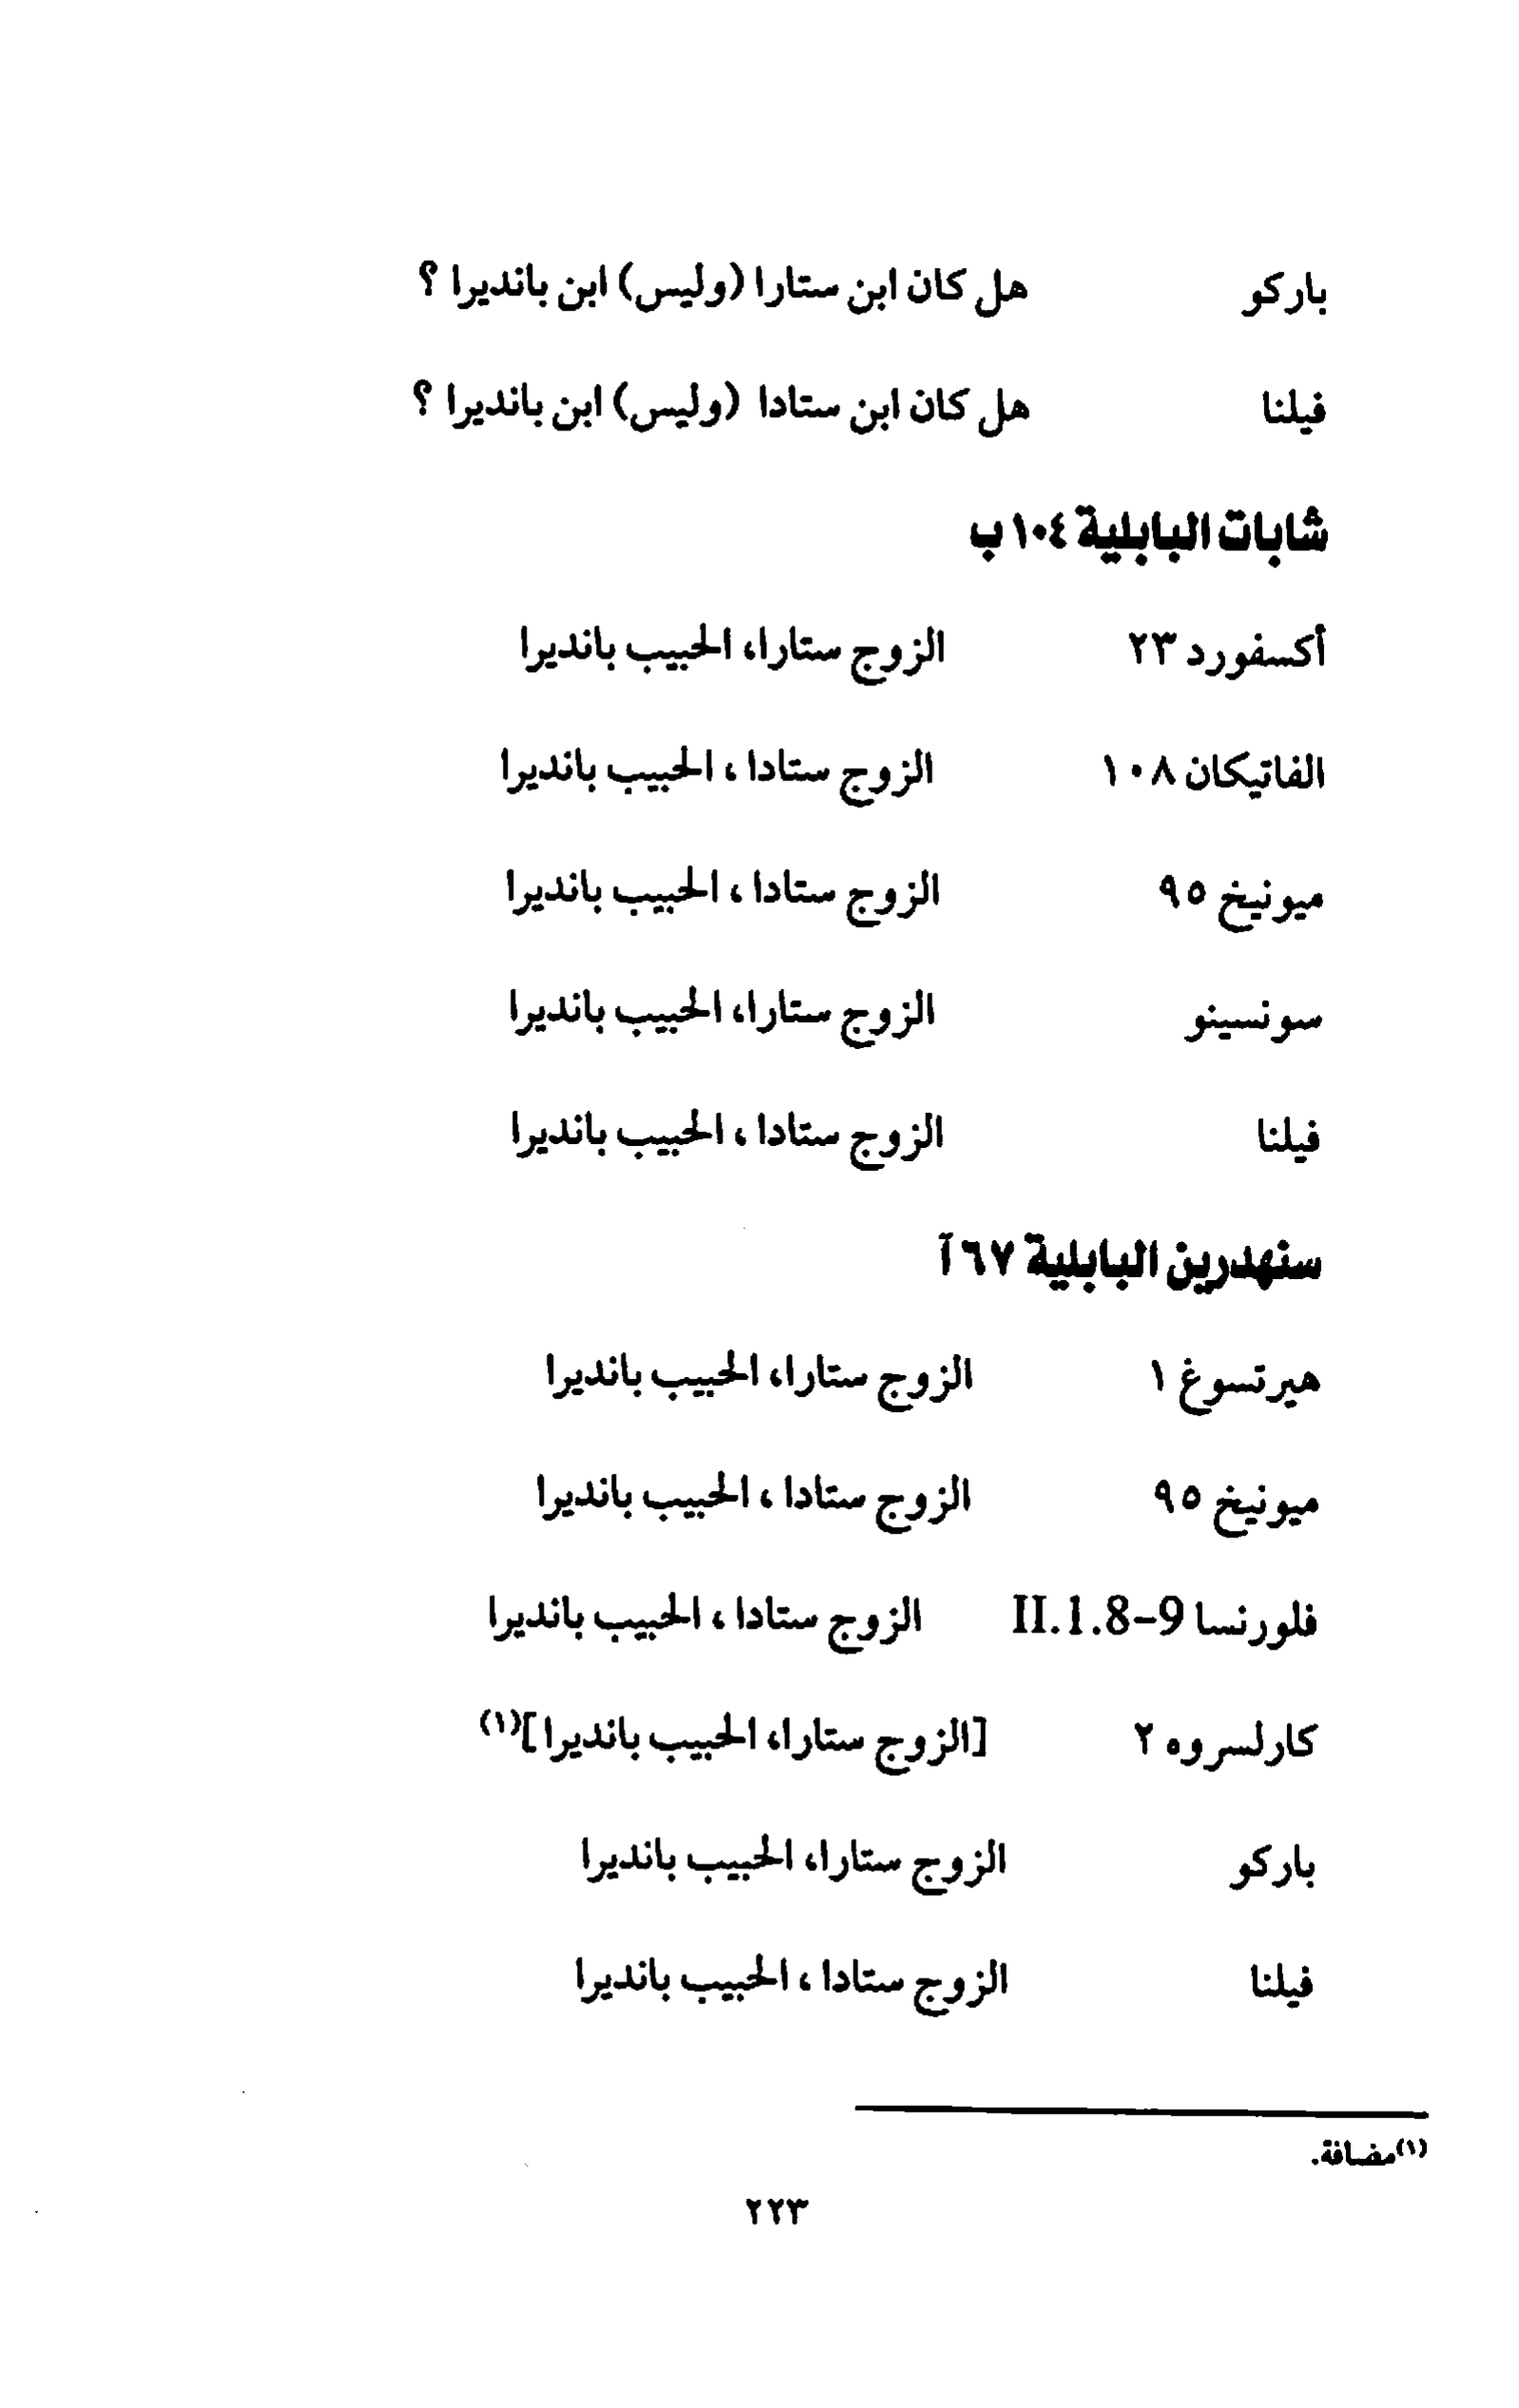 باركو هل كان ابن ستارا (وليس) ابن بانديرا ؟
فيلنا هل كان ابن ستادا (وليس) ابن بانديرا ؟
شابات البابلية ١٠٤ ب
أكسفورد ٢٣ الزوج ستارا، الحبيب بانديرا
الفاتيكان ١٠٨ الزوج ستادا ، الحبيب بانديرا
ميونيخ ٩٥ الزوج ستادا ، الحبيب بانديرا
سونسينو الزوج ستارا، الحبيب بانديرا
فيلنا الزوج ستادا ، الحبيب بانديرا
سنهدرين البابلية ٦٧ آ
هيرتسوغ ١ الزوج ستارا، الحبيب بانديرا
ميونيخ ٩٥ الزوج ستادا ، الحبيب بانديرا
فلورنسا II.1.8-9 الزوج ستادا ، الحبيب بانديرا
كارلسروه ٢ [الزوج ستارا، الحبيب بانديرا](١)
باركو الزوج ستارا، الحبيب بانديرا
فيلنا الزوج ستادا ، الحبيب بانديرا
(١)مضافة.
٢٢٣